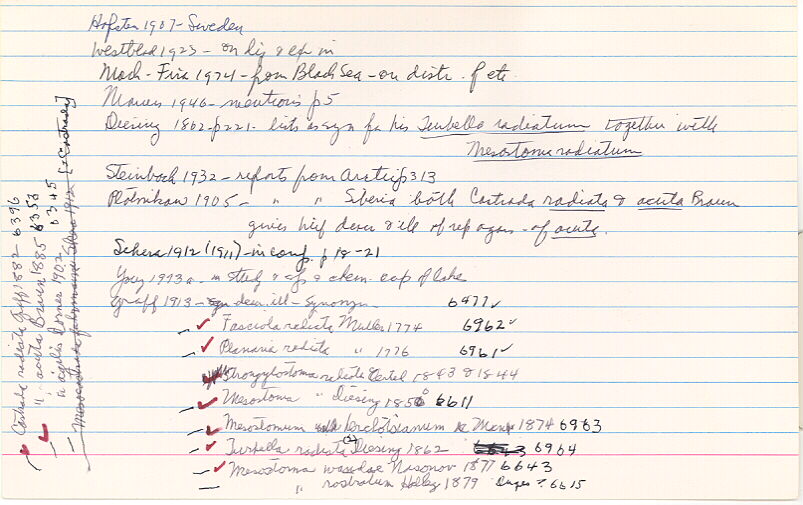 Hofsten 1907 - Sweden
Westblad 1923 - on dig & ex in
Mack-Fira 1974 - from Black Sea - on distr. f etc
1946 - mentions p5
Diesing 1862 - p221 - lists as syn for his Turbella radiatum together with
Mesostoma radiatum
Steinbock 1932 - reports from Arctic p313
Plotnikow 1905 - " " Siberia both Castrada radiata & acuta Braun
gives brief descr & ill of rep organs - of acuta.
1912 (1911) - in conf. p 18-21
1973a - in study of & chem. of lake
Graff 1913 - descr. ill - synonym 6477✓
✓ Fasciola radiata Muller 1774 6962✓
✓ Planaria radiata " 1776 6961✓
✓ Strongylostoma radiata Oersted 1843 & 1844
✓ Mesostoma " Diesing 1850 6611
✓ Mesostomum 1874 6963
✓ Turbella radiata Diesing 1862 6964
✓ Mesostoma Nasonov 1877 6643
" rostratum 1879 6615
✓ Castrada radiata Graff 1882 6396
✓ " acuta Braun 1885 6353
" agilis Dorner 1902 6345
[=Castrada]